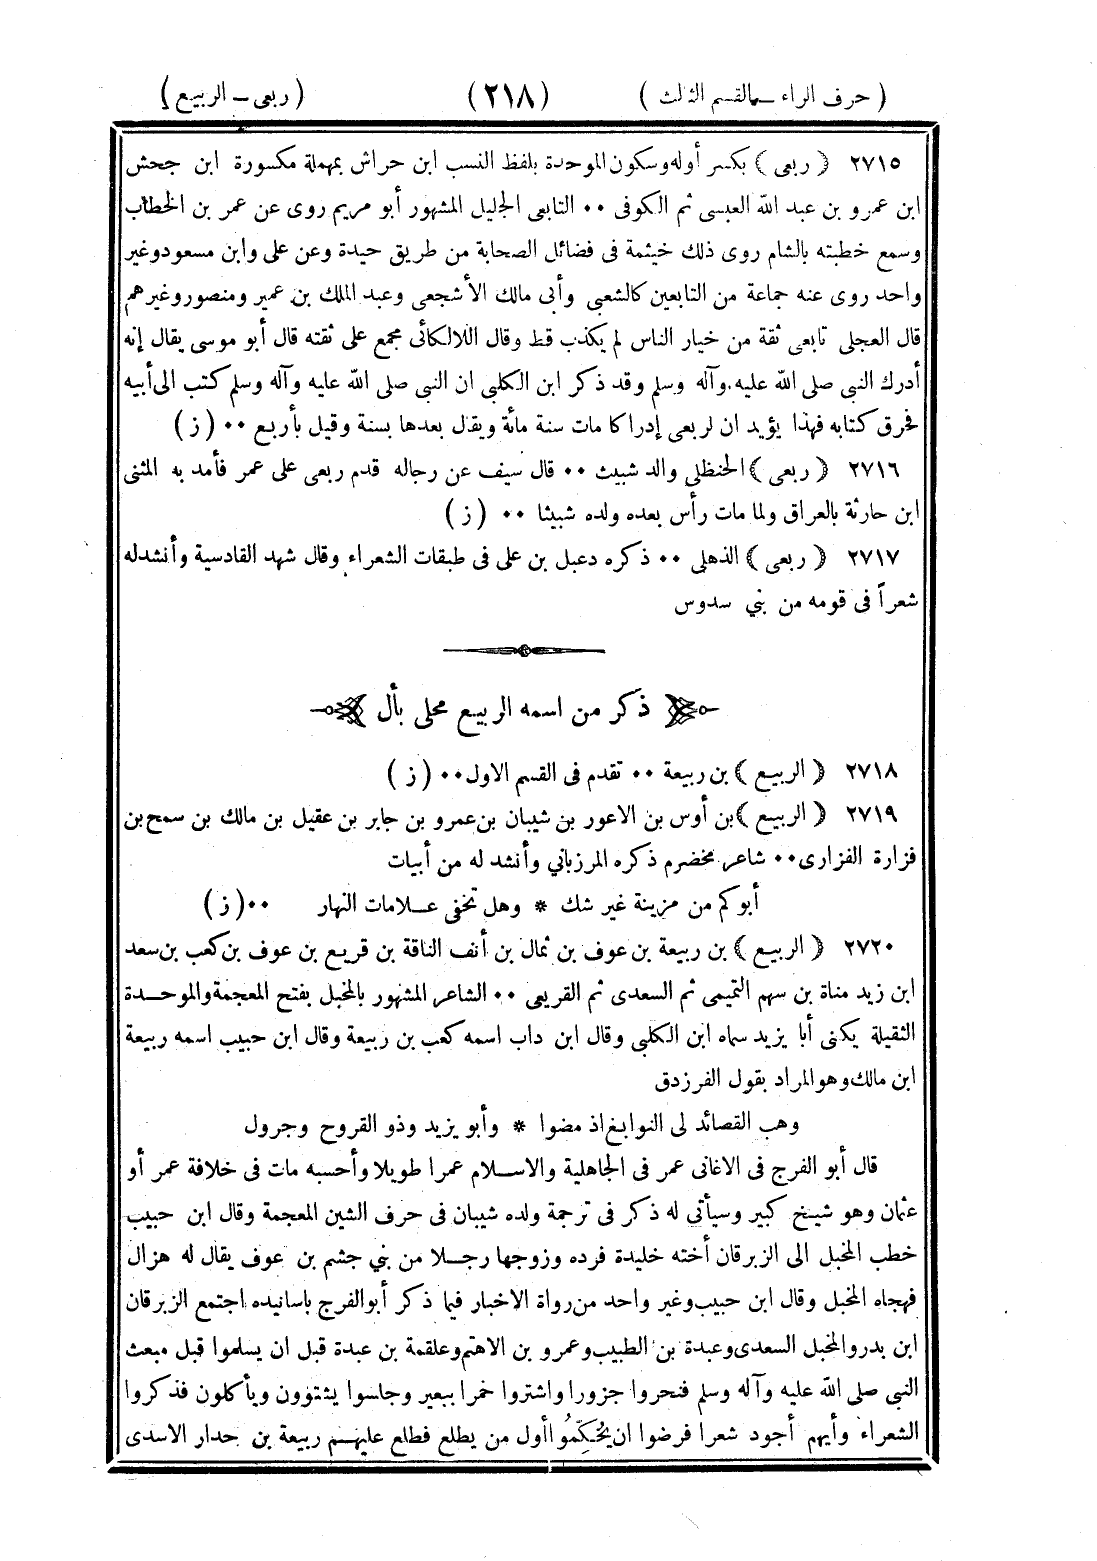 ( حرف الراء — القسم الثالث ) (٢١٨) ( ربعى — الربيع )
٢٧١٥ ﴿ ربعى ﴾ بكسر أوله وسكون الموحدة بلفظ النسب ابن حراش بمهملة مكسورة ابن جحش
ابن عمرو بن عبد الله العبسى ثم الكوفى ٠٠ التابعى الجليل المشهور أبو مريم روى عن عمر بن الخطاب
وسمع خطبته بالشام روى ذلك خيثمة فى فضائل الصحابة من طريق حيدة وعن على وابن مسعود وغير
واحد روى عنه جماعة من التابعين كالشعبي وأبى مالك الأشجعى وعبد الملك بن عمير ومنصور وغيرهم
قال العجلى تابعى ثقة من خيار الناس لم يكذب قط وقال اللالكائى مجمع على ثقته قال أبو موسى يقال إنه
أدرك النبى صلى الله عليه وآله وسلم وقد ذكر ابن الكلبي ان النبى صلى الله عليه وآله وسلم كتب الى أبيه
فحرق كتابه فهذا يؤيد ان لربعى إدراكا مات سنة مائة ويقال بعدها بسنة وقيل بأربع ٠٠ ( ز )
٢٧١٦ ﴿ ربعى ﴾ الحنظلى والد شبيث ٠٠ قال سيف عن رجاله قدم ربعى على عمر فأمد به المثنى
ابن حارثة بالعراق ولما مات رأس بعده ولده شبيثا ٠٠ ( ز )
٢٧١٧ ﴿ ربعى ﴾ الذهلى ٠٠ ذكره دعبل بن على فى طبقات الشعراء وقال شهد القادسية وأنشد له
شعراً فى قومه من بني سدوس
ذكر من اسمه الربيع محلى بأل
٢٧١٨ ﴿ الربيع ﴾ بن ربيعة ٠٠ تقدم فى القسم الاول ٠٠ ( ز )
٢٧١٩ ﴿ الربيع ﴾ بن أوس بن الاعور بن شيبان بن عمرو بن جابر بن عقيل بن مالك بن سمح بن
فزارة الفزارى ٠٠ شاعر مخضرم ذكره المرزباني وأنشد له من أبيات
أبوكم من مزينة غير شك * وهل تخفى عـلامات النهار ٠٠ ( ز )
٢٧٢٠ ﴿ الربيع ﴾ بن ربيعة بن عوف بن ثمال بن أنف الناقة بن قريع بن عوف بن كعب بن سعد
ابن زيد مناة بن سهم التميمى ثم السعدى ثم القريعى ٠٠ الشاعر المشهور بالمخبل بفتح المعجمة والموحـدة
الثقيلة يكنى أبا يزيد سماه ابن الكلبي وقال ابن داب اسمه كعب بن ربيعة وقال ابن حبيب اسمه ربيعة
ابن مالك وهو المراد بقول الفرزدق
وهب القصائد لى النوابغ اذ مضوا * وأبو يزيد وذو القروح وجرول
قال أبو الفرج فى الاغانى عمر فى الجاهلية والاسـلام عمرا طويلا وأحسبه مات فى خلافة عمر أو
عثمان وهو شيخ كبير وسيأتى له ذكر فى ترجمة ولده شيبان فى حرف الشين المعجمة وقال ابن حبيب
خطب المخبل الى الزبرقان أخته خليدة فرده وزوجها رجـلا من بني جشم بن عوف يقال له هزال
فهجاه المخبل وقال ابن حبيب وغير واحد من رواة الاخبار فيما ذكر أبو الفرج باسانيده اجتمع الزبرقان
ابن بدر والمخبل السعدى وعبدة بن الطبيب وعمرو بن الاهتم وعلقمة بن عبدة قبل ان يسلموا قبل مبعث
النبى صلى الله عليه وآله وسلم فنحروا جزورا واشتروا خمرا ببعير وجلسوا يشتوون ويأكلون فذكروا
الشعراء وأيهم أجود شعرا فرضوا ان يُحَكِّمُوا أول من يطلع فطلع عليهـم ربيعة بن حدار الاسدى